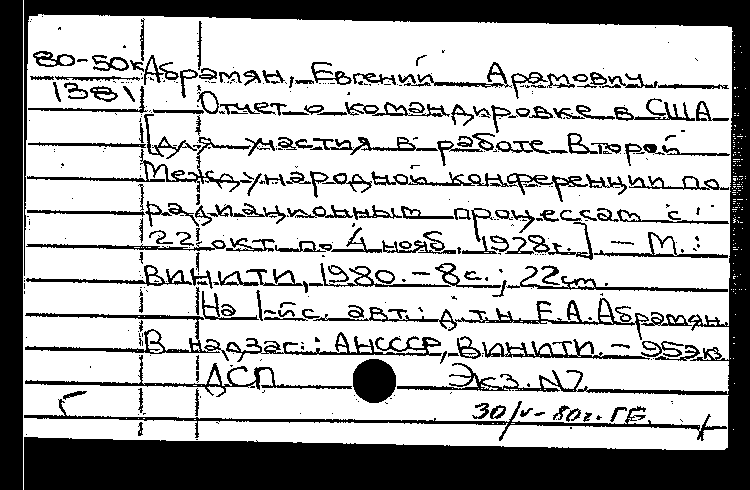 80-50к Абрамян, Евгений Арамович.
1381 Отчет о командировке в США
[для участия в работе Второй
Международной конференции по
радиационным процессам с
22 окт. по 4 нояб. 1978г.] – М.:
ВИНИТИ, 1980. – 8 с.; 22 см.
На 1-й с. авт.: д.т.н. Е.А. Абрамян.
В надзаг.: АНСССР, ВИНИТИ. – 95 экз
ДСП Экз. N7
Г 30/V-80г. ГБ.